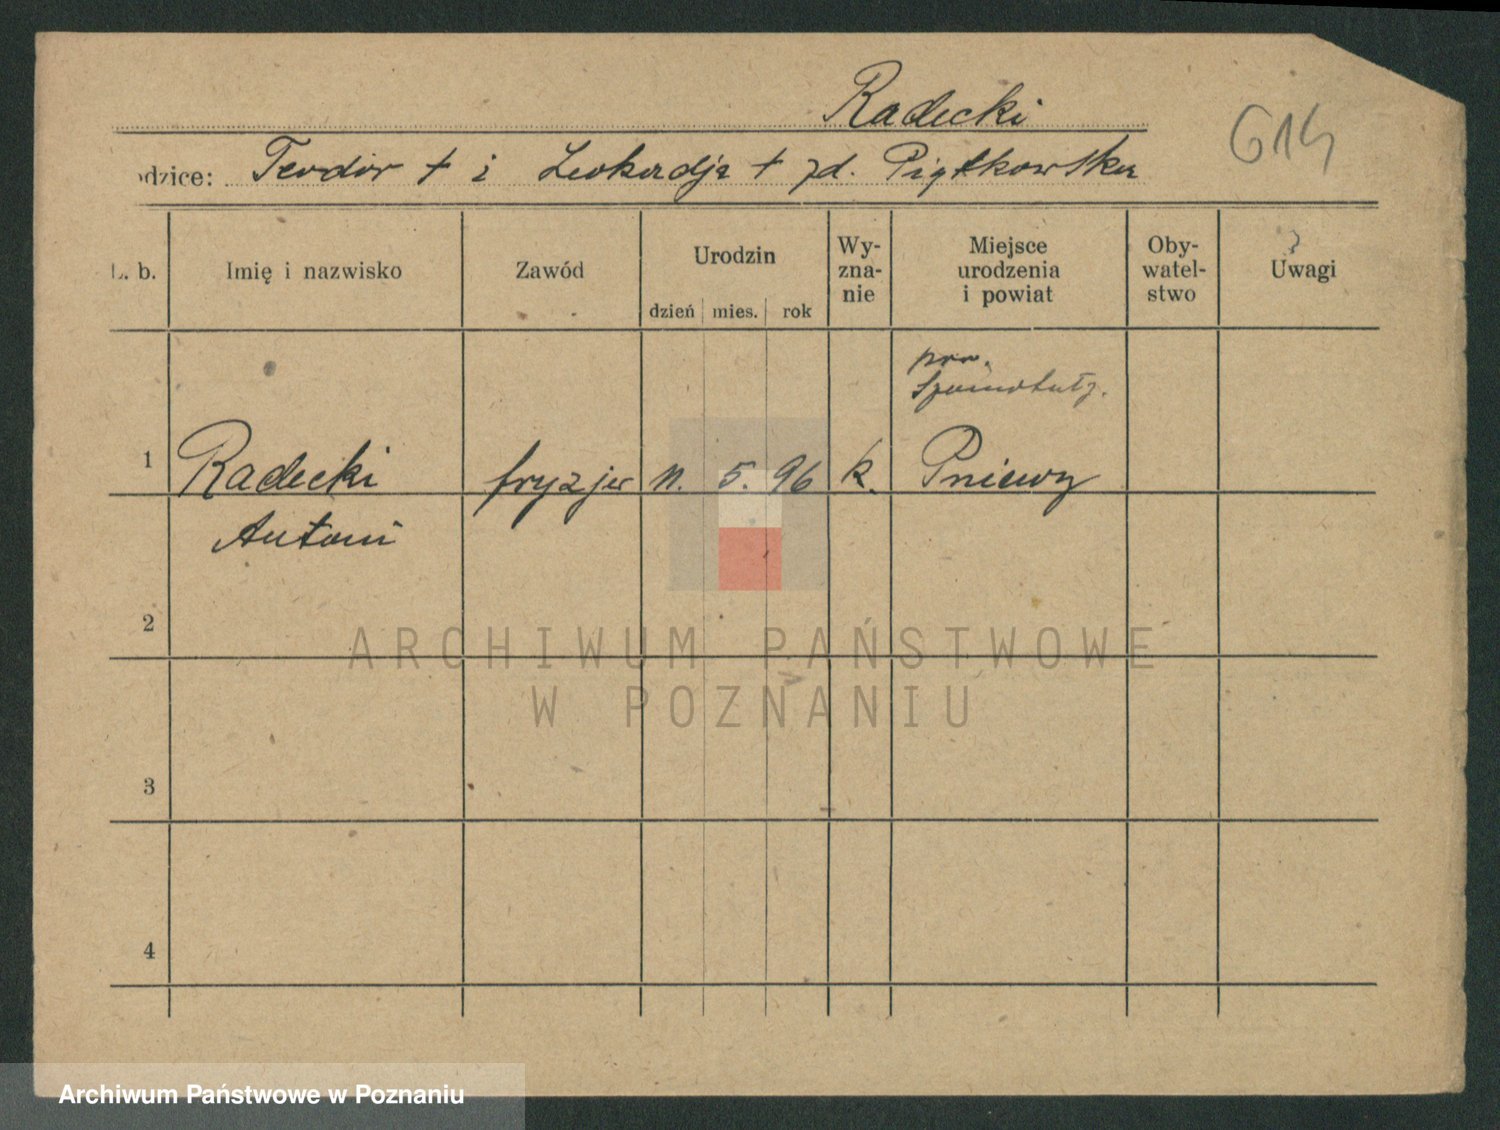 Radecki
614
odzice: Teodor + i Leokadja + zd. Piątkowska
L. b.
Imię i nazwisko
Zawód
Urodzin
dzień mies. rok
Wy-
zna-
nie
Miejsce
urodzenia
i powiat
Oby-
watel-
stwo
Uwagi
pow.
Szamotuły.
1 Radecki fryzjer 11. 5. 96 k. Pniewy
Antoni
2
3
4
ARCHIWUM PAŃSTWOWE
W POZNANIU
Archiwum Państwowe w Poznaniu